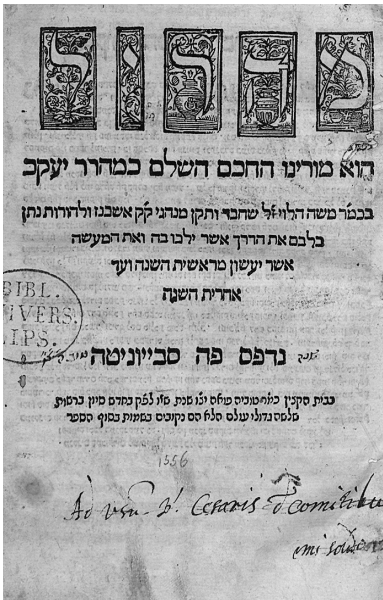 מהריל
הוא מורינו החכם השלם כמהרר יעקב
בכמ"ר משה הלוי ז"ל שחבר ותקן מנהגי ק"ק אשכנז ולהורות נתן
בלבם את הדרך אשר ילכו בה ואת המעשה
אשר יעשון מראשית השנה ועד
אחרית השנה
BIBL.
IVERS.
IPS.
נדפס פה סבייוניטה
בבית הקצין טוביה פואה יצ"ו שנת שי"ו לפ"ק בחדש סיון ברשות
שלשה גדולי עולם הלא הם נקובים בשמות בסוף הספר
1556
Ad Cesaris comitibu